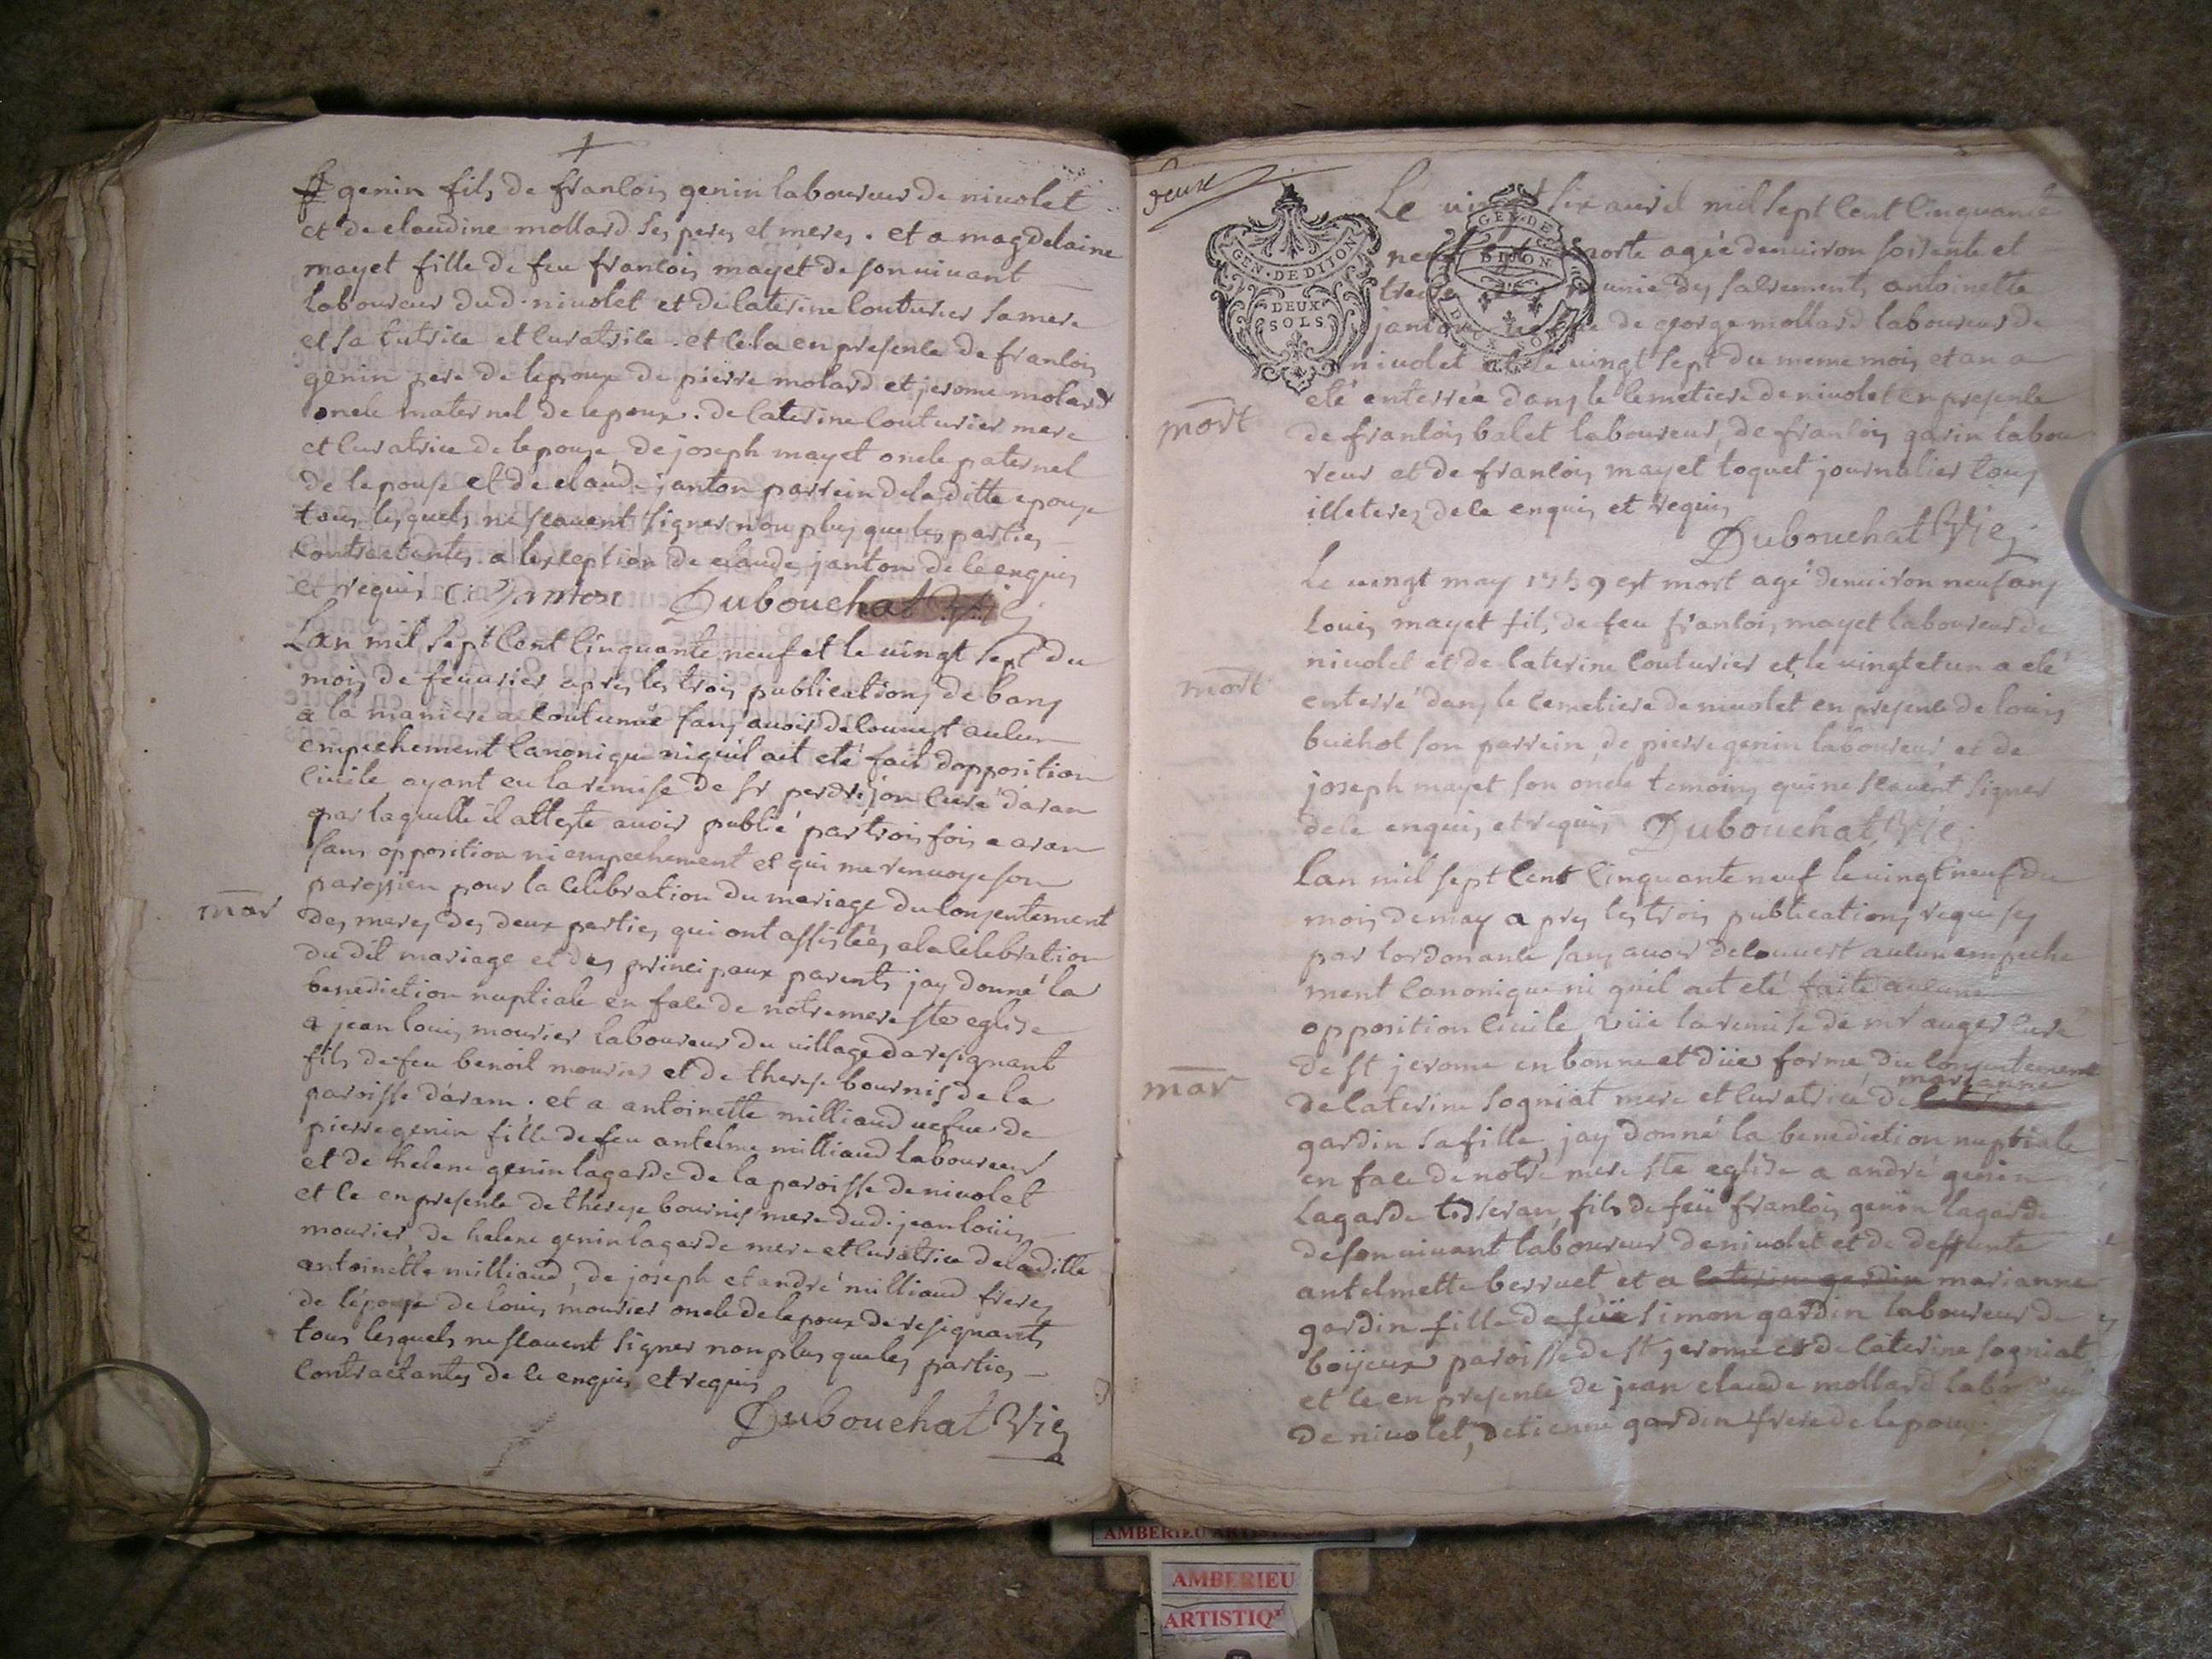 genin fils de francois genin laboureur de nivolet
et de claudine mollard ses peres et meres. et a magdelaine
mayet fille de feu francois mayet de son vivant
laboureur dud. nivolet et de caterine couturier sa mere
et sa tutrice et curatrice. et cela en presence de francois
genin pere de lepoux de pierre molard et jerome molard
oncle maternel de lepoux. de caterine couturier mere
et curatrice de lepouse, de joseph mayet oncle paternel
de lepouse et de claude janton parrein de la ditte epouse
tous lesquels ne scavent signer non plus que les parties
contractantes a lexception de claude janton de ce enquis
et requis C. Janton Dubouchat Vic
Lan mil sept cent cinquante neuf et le vingt sept du
mois de fevvrier apres les trois publications de bans
a la maniere accoutumée sans avoir decouvert aucun
empechement canonique ni quil ait eté fait dopposition
civile ayant eu la remise de sr perdrijon curé daran
par laquelle il atteste avoir publié par trois fois a aran
sans opposition ni empechement et qui me renvoye son
parossien pour la celebration du mariage du consentement
mar
des meres des deux parties qui ont assistées a la celebration
du dit mariage et des principaux parents jay donné la
benediction nuptiale en face de notre mere ste eglise
a jean louis mourier laboureur du village de resignant
fils de feu benoit mourier et de therese bournis de la
paroisse d'aran. et a antoinette milliaud vefve de
pierre genin fille de feu antelme milliaud laboureur
et de helene genin lagarde de la paroisse de nivolet
et ce en presence de therese bournis mere dud. jean louis
mourier, de helene genin lagarde mere et curatrice de la ditte
antoinette milliaud, de joseph et andré milliaud freres
de lépouse de louis mourier oncle de lepoux de resignants
tous lesquels ne scavent signer non plus que les parties
contractantes de ce enquis et requis
Dubouchat Vic
deux
GEN. DE DIJON
DEUX
SOLS
GEN. DE
DIJON
DEUX SOLS
Le vingt six avril mil sept cent cinquante
neuf est morte agée denviron soisente et
treize munie des sacrements antoinette
janton vefve de george mollard laboureur de
nivolet et le vingt sept du meme mois et an a
eté enterrée dans le cemetiere de nivolet en presence
mort
de francois balet laboureur, de francois garin labou
reur et de francois mayet toquet journalier tous
illeterez de ce enquis et requis
Dubouchat Vic
Le vingt may 1759 est mort agé denviron neuf ans
Louis mayet fils de feu francois mayet laboureur de
nivolet et de caterine couturier et le vingt et un a eté
mort
enterré dans le cemetiere de nivolet en presence de louis
buchot son parrein, de pierre genin laboureur, et de
joseph mayet son oncle temoins qui ne scavent signer
de ce enquis et requis Dubouchat Vic
Lan mil sept cent cinquante neuf le vingt neuf du
mois de may apres les trois publications requises
par lordonance sans avoir decouvert aucun empeche
ment canonique ni quil ait eté faite aucune
opposition civile, vüe la remise de mr auger curé
de st jerome en bonne et düe forme, du consentement
marianne
mar
de caterine sogniat mere et curatrice de caterine
gardin sa fille, jay donné la benediction nuptiale
en face de notre mere ste eglise a andré genin
Lagarde fils de feü francois genin lagarde
de son vivant laboureur de nivolet et de deffunte
antelmette berruet et a caterine gardin marianne
gardin fille de feü simon gardin laboureur de
boijeux paroisse de st jerome et de caterine sogniat
et ce en presence de jean claude mollard
de nivolet, detienne gardin frere de lepouse
AMBERIEU ARTISTIQUE
AMBERIEU
ARTISTIQ